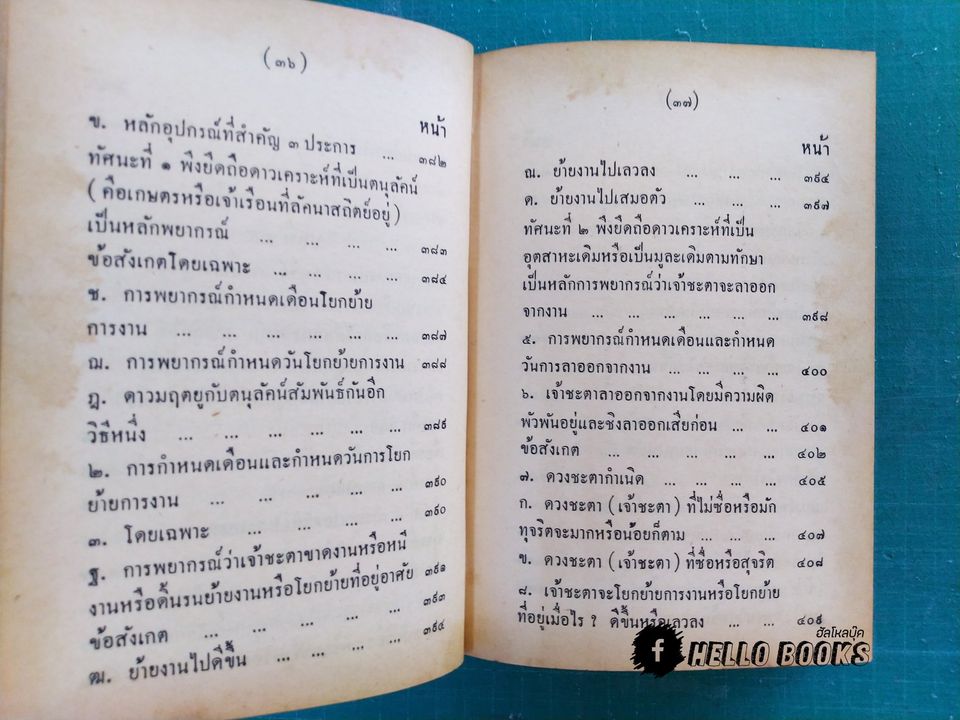 (๓๖)
หน้า
ข. หลักอุปกรณ์ที่สำคัญ ๓ ประการ ... ๓๘๒
ทัศนะที่ ๑ พึงยึดถือดาวเคราะห์ที่เป็นตนุลัคน์
(คือเกษตรหรือเจ้าเรือนที่ลัคนาสถิตย์อยู่)
เป็นหลักพยากรณ์ ... ... ... ... ๓๘๓
ข้อสังเกตโดยเฉพาะ ... ... ... ... ๓๘๔
ช. การพยากรณ์กำหนดเดือนโยกย้าย
การงาน ... ... ... ... ... ๓๘๗
ฌ. การพยากรณ์กำหนดวันโยกย้ายการงาน ๓๘๘
ฎ. ดาวมฤตยูกับตนุลัคน์สัมพันธ์กันอีก
วิธีหนึ่ง ... ... ... ... ... ๓๘๙
๒. การกำหนดเดือนและกำหนดวันการโยก
ย้ายการงาน ... ... ... ... ๓๙๐
๓. โดยเฉพาะ ... ... ... ... ๓๙๐
ฐ. การพยากรณ์ว่าเจ้าชะตาขาดงานหรือหนี
งานหรือดิ้นรนย้ายงานหรือโยกย้ายที่อยู่อาศัย ๓๙๑
ข้อสังเกต ... ... ... ... ๓๙๓
ฒ. ย้ายงานไปดีขึ้น ... ... ... ๓๙๔
(๓๗)
หน้า
ณ. ย้ายงานไปเลวลง ... ... ... ๓๙๕
ด. ย้ายงานไปเสมอตัว ... ... ... ๓๙๗
ทัศนะที่ ๒ พึงยึดถือดาวเคราะห์ที่เป็น
อุตสาหะเดิมหรือเป็นมูละเดิมตามทักษา
เป็นหลักการพยากรณ์ว่าเจ้าชะตาจะลาออก
จากงาน ... ... ... ... ... ๓๙๘
๕. การพยากรณ์กำหนดเดือนและกำหนด
วันการลาออกจากงาน ... ... ... ... ๔๐๐
๖. เจ้าชะตาลาออกจากงานโดยมีความผิด
พัวพันอยู่และชิงลาออกเสียก่อน ... ... ๔๐๑
ข้อสังเกต ... ... ... ... ... ๔๐๒
๗. ดวงชะตากำเนิด ... ... ... ... ๔๐๕
ก. ดวงชะตา (เจ้าชะตา) ที่ไม่ซื่อหรือมัก
ทุจริตจะมากหรือน้อยก็ตาม ... ... ... ๔๐๗
ข. ดวงชะตา (เจ้าชะตา) ที่ซื่อหรือสุจริต ๔๐๘
๘. เจ้าชะตาจะโยกย้ายการงานหรือโยกย้าย
ที่อยู่เมื่อไร ? ดีขึ้นหรือเลวลง ... ... ๔๐๙
ฮัลโหลบุ๊ค
f HELLO BOOKS